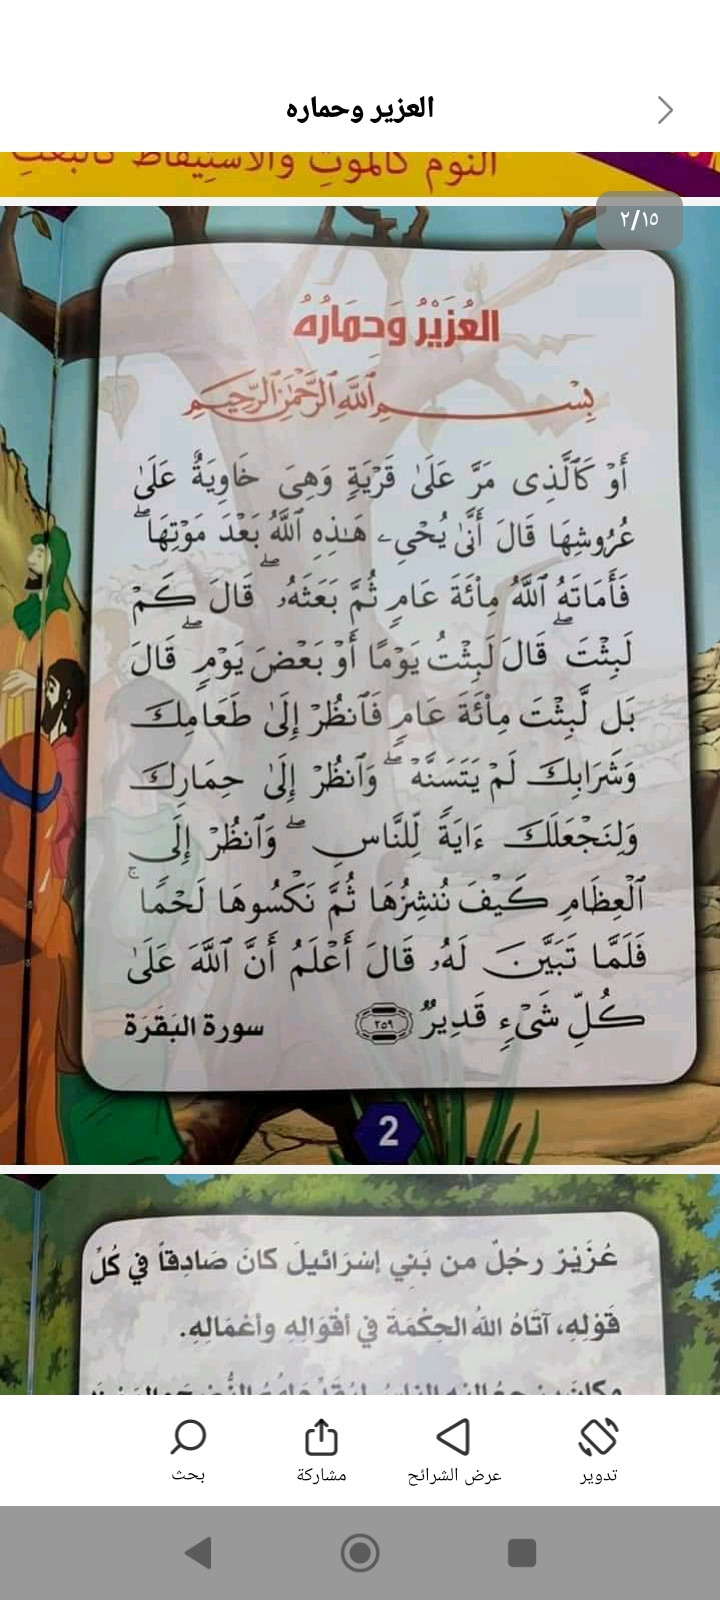 العزيز وحماره
النوم كالموت والاستيقاظ كالبعث
٢/١٥
العُزَيْرُ وَحِمَارُهُ
بِسْمِ ٱللَّهِ ٱلرَّحْمَٰنِ ٱلرَّحِيمِ
أَوْ كَٱلَّذِى مَرَّ عَلَىٰ قَرْيَةٍ وَهِىَ خَاوِيَةٌ عَلَىٰ
عُرُوشِهَا قَالَ أَنَّىٰ يُحْىِۦ هَـٰذِهِ ٱللَّهُ بَعْدَ مَوْتِهَا ۖ
فَأَمَاتَهُ ٱللَّهُ مِا۟ئَةَ عَامٍ ثُمَّ بَعَثَهُۥ ۖ قَالَ كَمْ
لَبِثْتَ ۖ قَالَ لَبِثْتُ يَوْمًا أَوْ بَعْضَ يَوْمٍ ۖ قَالَ
بَل لَّبِثْتَ مِا۟ئَةَ عَامٍ فَٱنظُرْ إِلَىٰ طَعَامِكَ
وَشَرَابِكَ لَمْ يَتَسَنَّهْ ۖ وَٱنظُرْ إِلَىٰ حِمَارِكَ
وَلِنَجْعَلَكَ ءَايَةً لِّلنَّاسِ ۖ وَٱنظُرْ إِلَى
ٱلْعِظَامِ كَيْفَ نُنشِزُهَا ثُمَّ نَكْسُوهَا لَحْمًا ۚ
فَلَمَّا تَبَيَّنَ لَهُۥ قَالَ أَعْلَمُ أَنَّ ٱللَّهَ عَلَىٰ
كُلِّ شَىْءٍ قَدِيرٌ ٢٥٩ سورة البَقَرَة
2
عُزَيْرٌ رجُلٌ من بَنِي إسْرَائيلَ كانَ صَادِقاً في كُلِّ
قَوْلِهِ، آتَاهُ اللهُ الحِكْمَةَ في أقْوَالِهِ وأعْمَالِهِ.
تدوير
عرض الشرائح
مشاركة
بحث